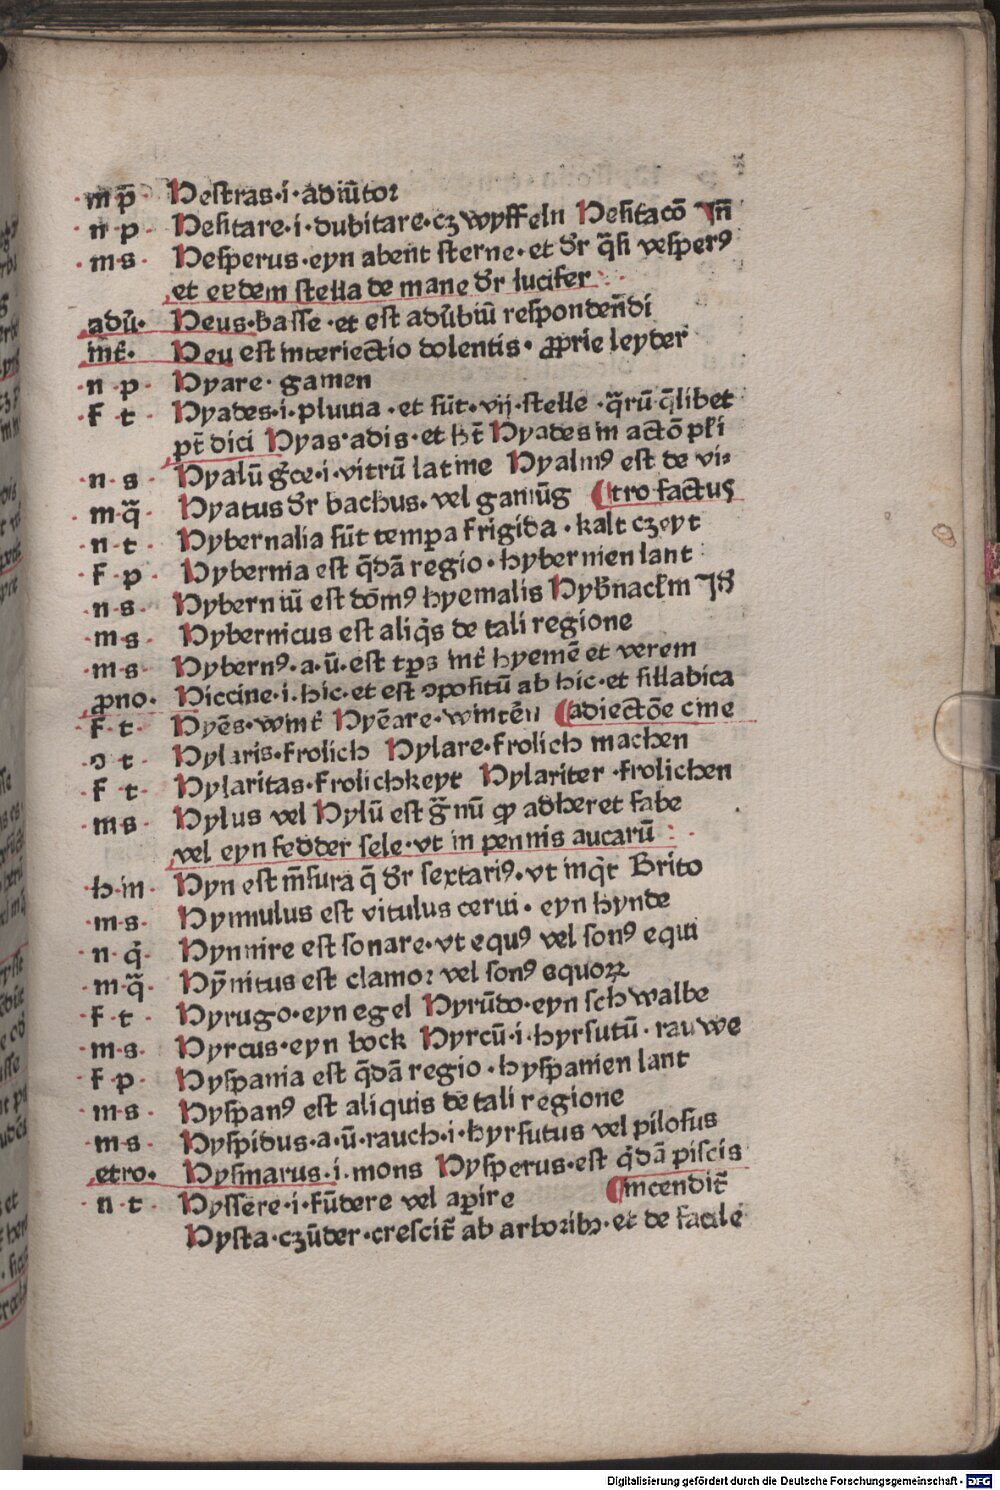 ·m p̄· Hestras·i·adiūtor
·n p· Hesitare·i·dubitare·cz wyffeln Hesitacō Vn̄
·m s· Hesperus·eyn abent sterne·et dr̄ q̄si vesperꝰ
et eedem stella de mane dr̄ lucifer
adū· Heus·basse·et est adūbiū respondend̄i
īnt̄· Heu est interiectio dolentis·ꝓprie leyder
·n p· Hyare·gamen
·f t· Hyades·i·pluuia·et sūt·vij·stelle·q̄rū q̄libet
pt̄ dici Hyas·adis·et ht̄ Hyades in actō pl̄i
·n s· Hyalū gr̄ce·i·vitrū latine Hyalinꝰ est de vi⸗
·m q̄· Hyatus dr̄ bachus·vel gamūg ¶tro factus
·n t· Hybernalia sūt tempa frigida·kalt czeyt
·f p· Hybernia est q̄dā regio·hybernien lant
·n s· Hyberniū est dōmꝰ hyemalis Hybn̄acl̄m Jd̄
·m s· Hybernicus est aliq̄s de tali regione
·m s· Hybernꝰ·a·ū·est tp̄s int̄ hyemē et verem
ꝓno· Hiccine·i·hic·et est ꝯpositū ab hic·et sillabica
·f t· Hyēs·wint̄ Hyēare·wintēn ¶adiectōe cine
·ꝯ t· Hylaris·frolich Hylare·frolich machen
·f t· Hylaritas·frolichkeyt Hylariter·frolichen
·m s· Hylus vel Hylū est gr̄nū qd̄ adheret fabe
vel eyn fedder sele·vt in pennis aucarū
·h·in· Hyn est m̄sura q̄ dr̄ sextariꝰ·vt inq̄t Brito
·m s· Hynnulus est vitulus cerui·eyn hynde
·n q̄· Hynnire est sonare·vt equꝰ vel sonꝰ equi
·m q̄· Hȳnitus est clamor vel sonꝰ equoꝝ
·f t· Hyrugo·eyn egel Hyrūdo·eyn schwalbe
·m s· Hyrcus·eyn bock Hyrcū·i·hyrsutū·rauwe
·f p· Hyspania est q̄dā regio·hyspanien lant
·m s· Hyspanꝰ est aliquis de tali regione
·m s· Hyspidus·a·ū·rauch·i·hyrsutus vel pilosus
etro· Hysmarus·i·mons Hysperus·est q̄dā piscis
·n t· Hyssere·i·fūdere vel aꝑire ¶incendit̄
Hysta·czūder·crescit̄ ab arboribꝫ·et de facile
Digitalisierung gefördert durch die Deutsche Forschungsgemeinschaft - DFG